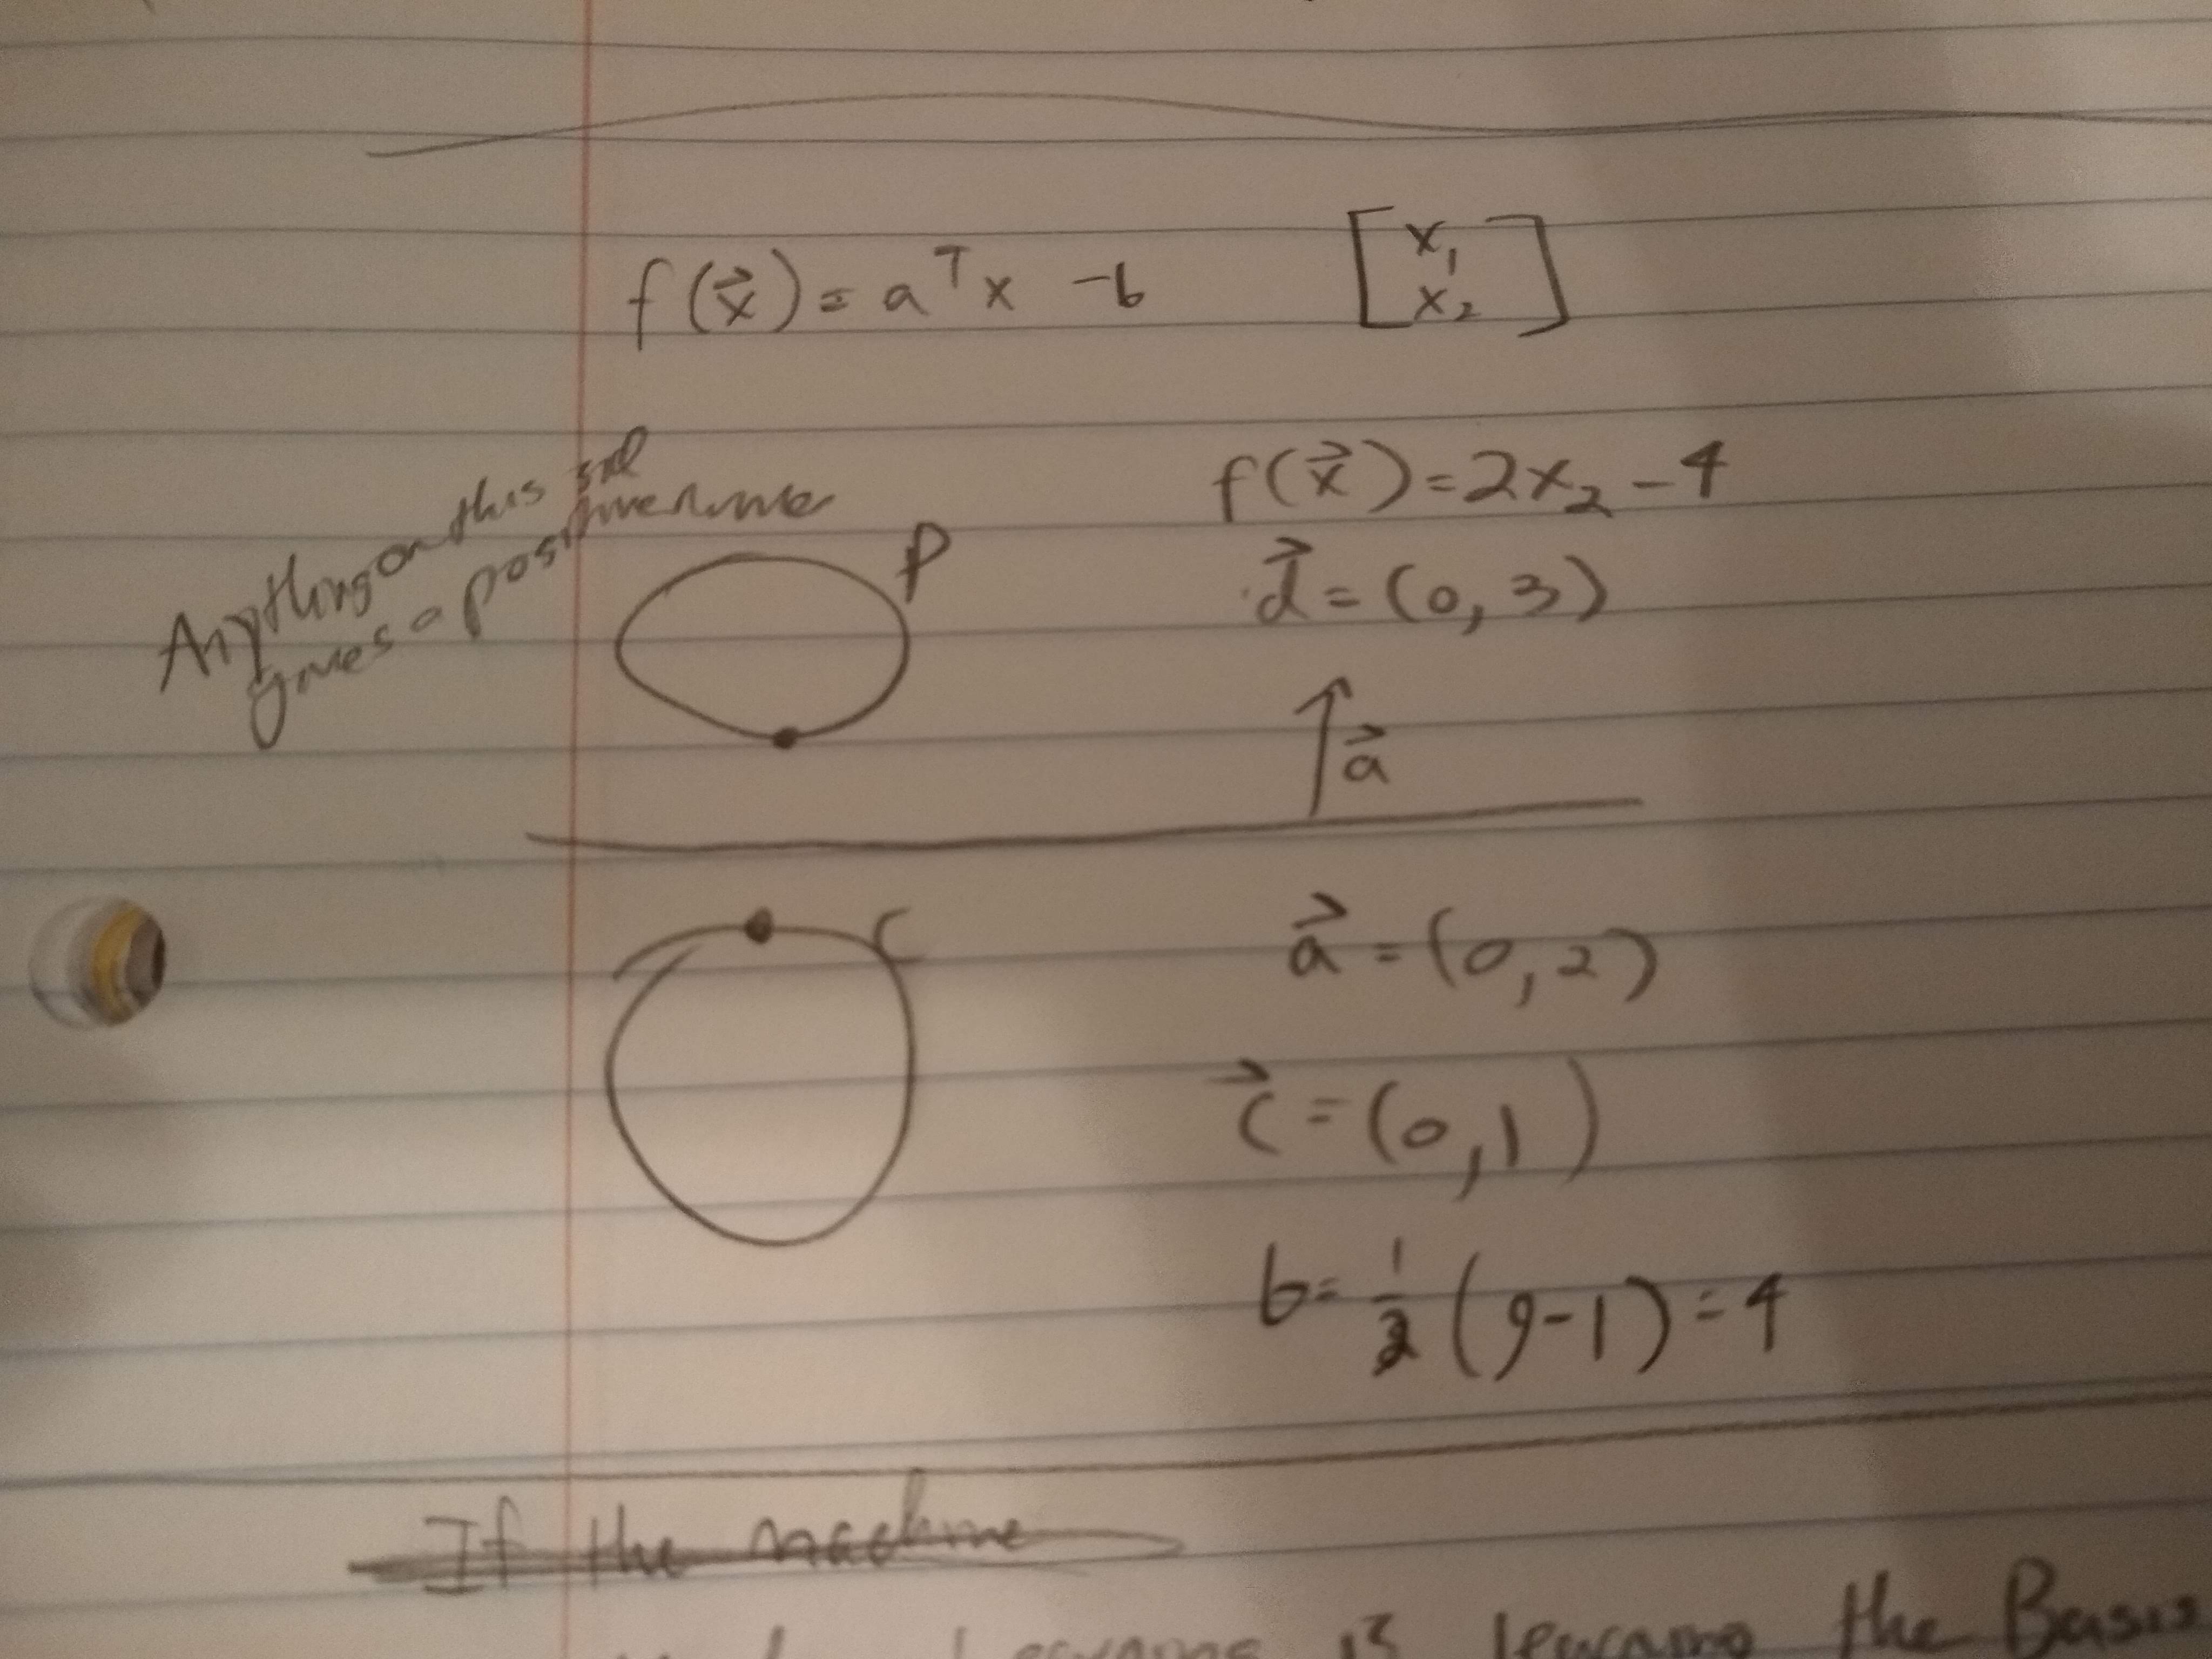 f(x⃗) = aᵀx - b [x₁ x₂]
Anything on this
gives a positive
f(x⃗) = 2x₂ - 4
D
d⃗ = (0, 3)
a⃗
C
a⃗ = (0, 2)
c⃗ = (0, 1)
b = 1/2 (9-1) = 4
If the machine
is learning the Basis